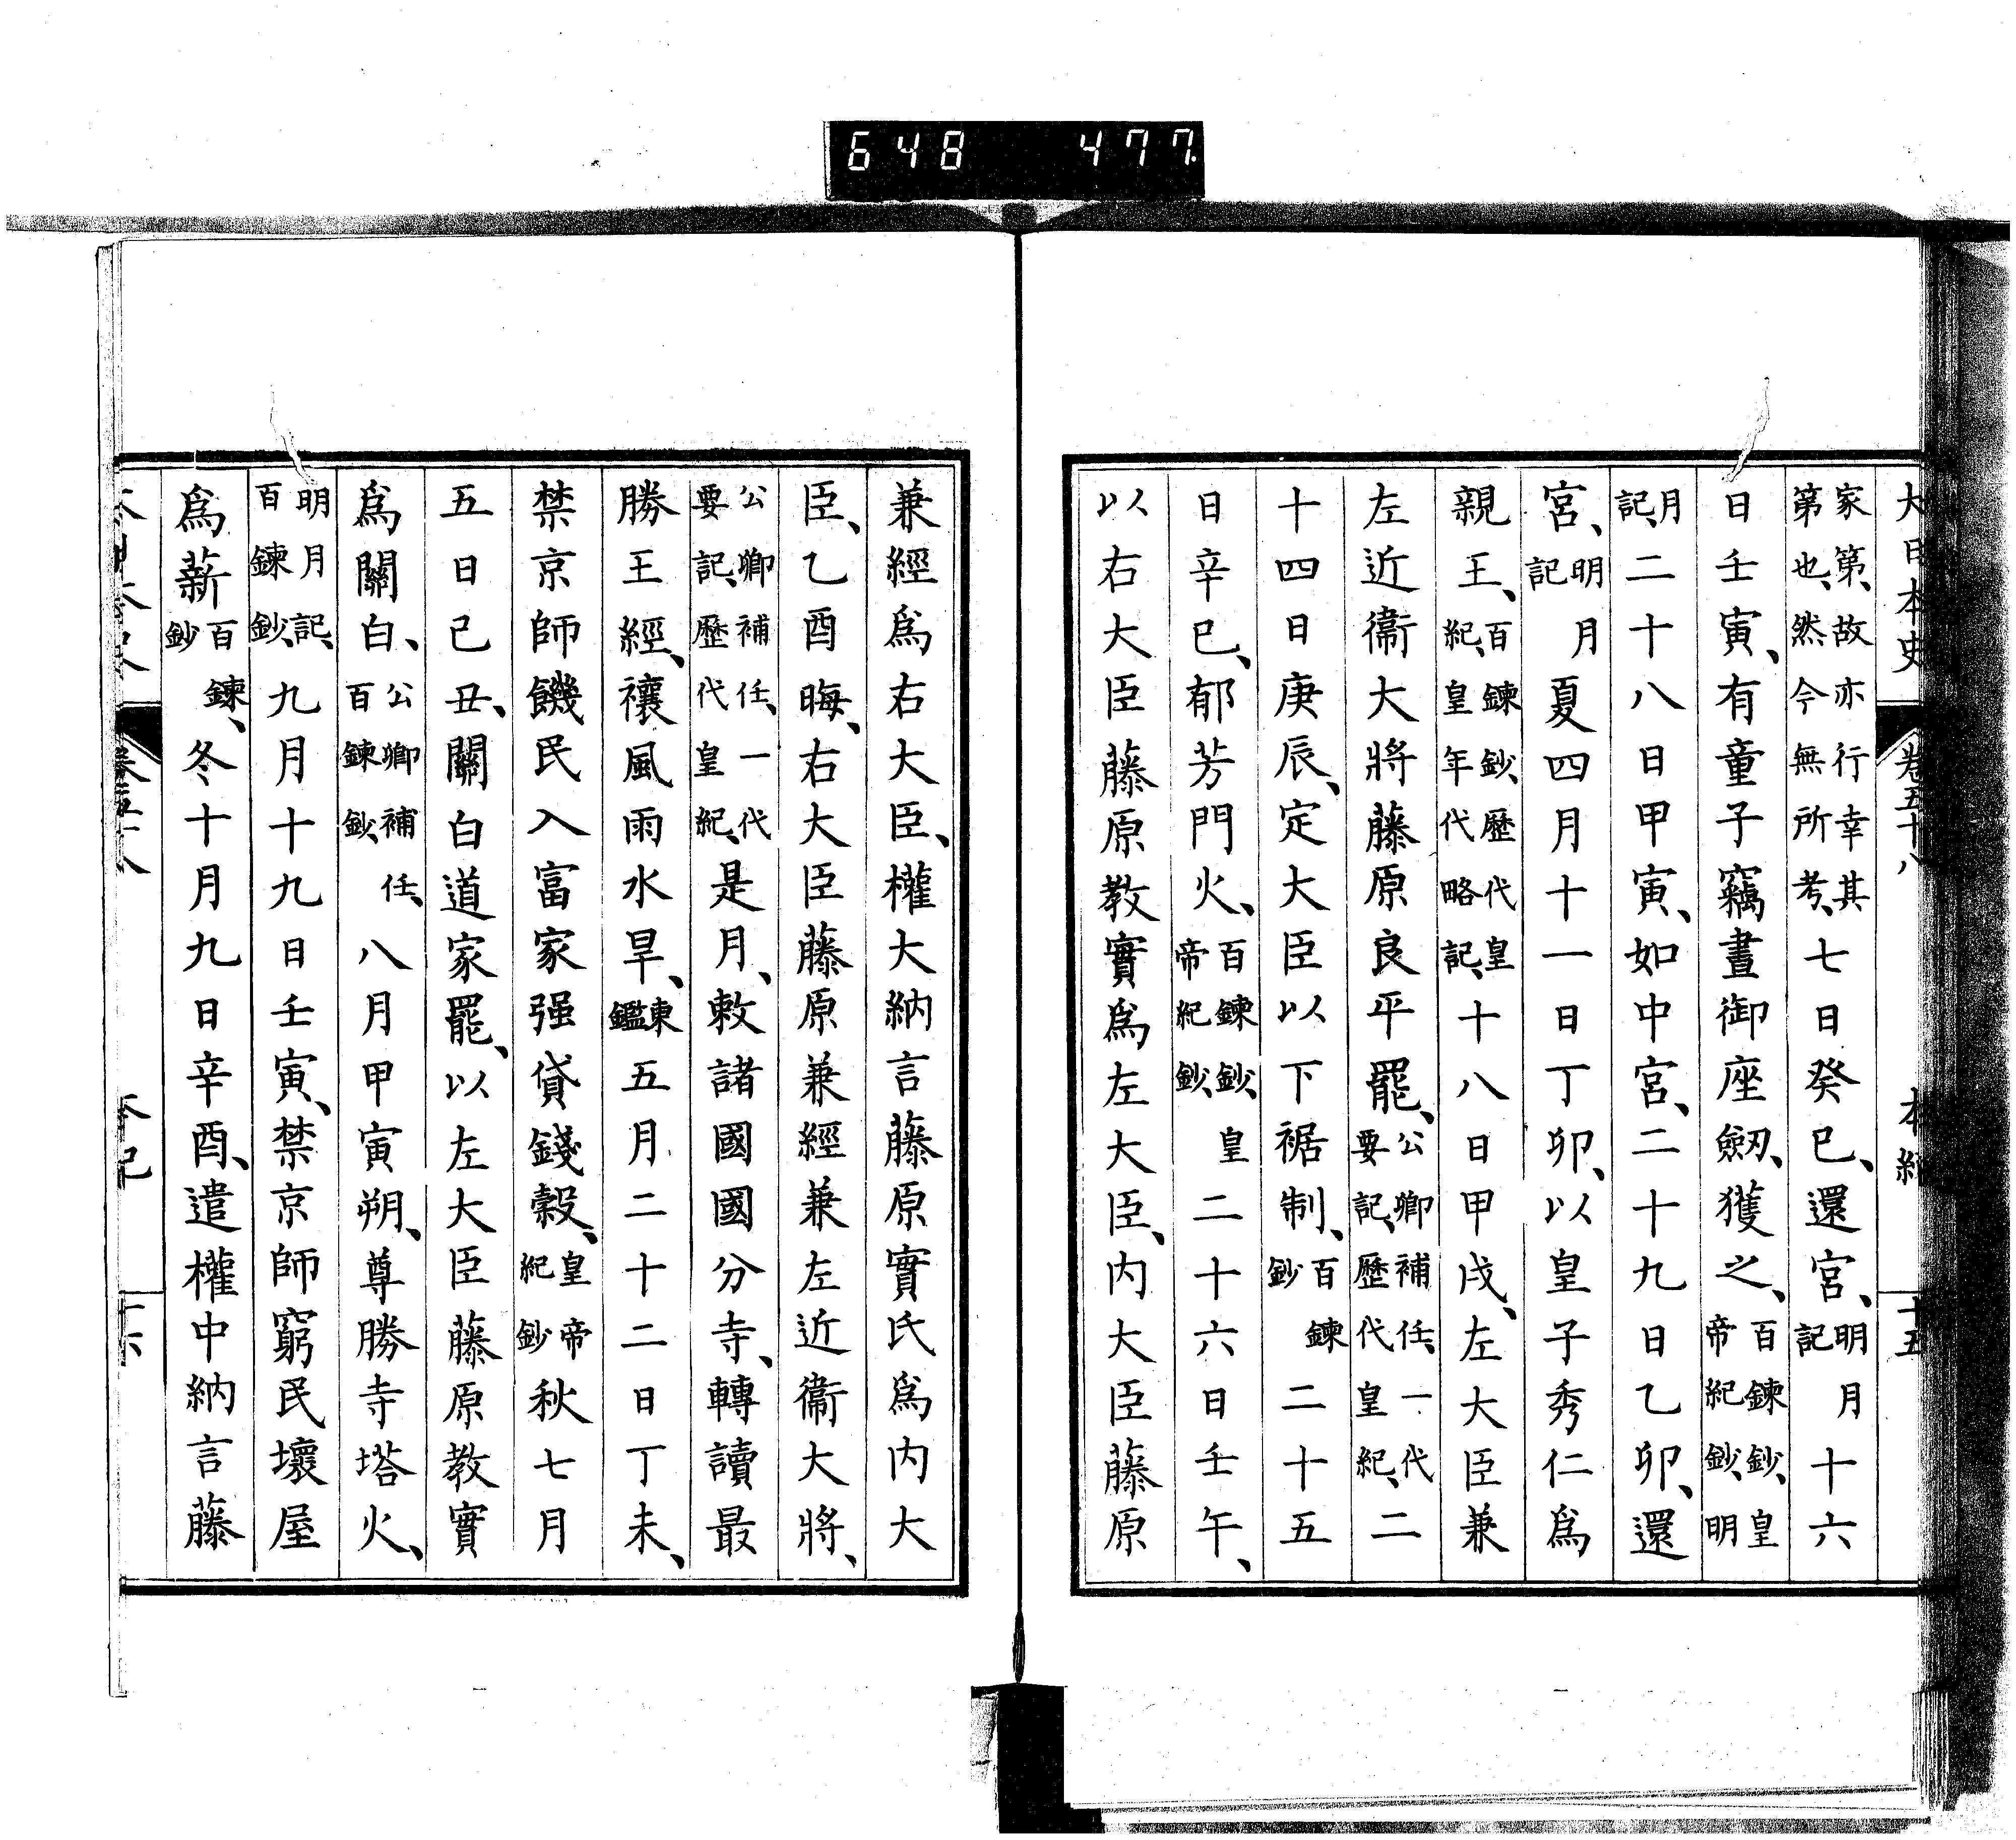 648 477
大日本史 卷五十八 本紀 十五
家第、故亦行幸其第也、然今無所考、七日癸巳、還宮、明月記十六
日壬寅、有童子竊晝御座劒、獲之、百鍊鈔、皇帝紀鈔、明
月記、二十八日甲寅、如中宮、二十九日乙卯、還
宮、明月記夏四月十一日丁卯、以皇子秀仁爲
親王、百鍊鈔、歷代皇紀、皇年代略記、十八日甲戌、左大臣兼
左近衞大將藤原良平罷、公卿補任、一代要記、歷代皇紀、二
十四日庚辰、定大臣以下裾制、百鍊鈔二十五
日辛巳、郁芳門火、百鍊鈔、皇帝紀鈔、二十六日壬午、
以右大臣藤原教實爲左大臣、内大臣藤原
兼經爲右大臣、權大納言藤原實氏爲内大
臣、乙酉晦、右大臣藤原兼經兼左近衞大將、
公卿補任、一代要記、歷代皇紀、是月、敕諸國國分寺、轉讀最
勝王經、禳風雨水旱、東鑑五月二十二日丁未、
禁京師饑民入富家强貸錢穀、皇帝紀鈔秋七月
五日己丑、關白道家罷、以左大臣藤原教實
爲關白、公卿補任、百鍊鈔、八月甲寅朔、尊勝寺塔火、
明月記、百鍊鈔、九月十九日壬寅、禁京師窮民壞屋
爲薪百鍊鈔、冬十月九日辛酉、遣權中納言藤